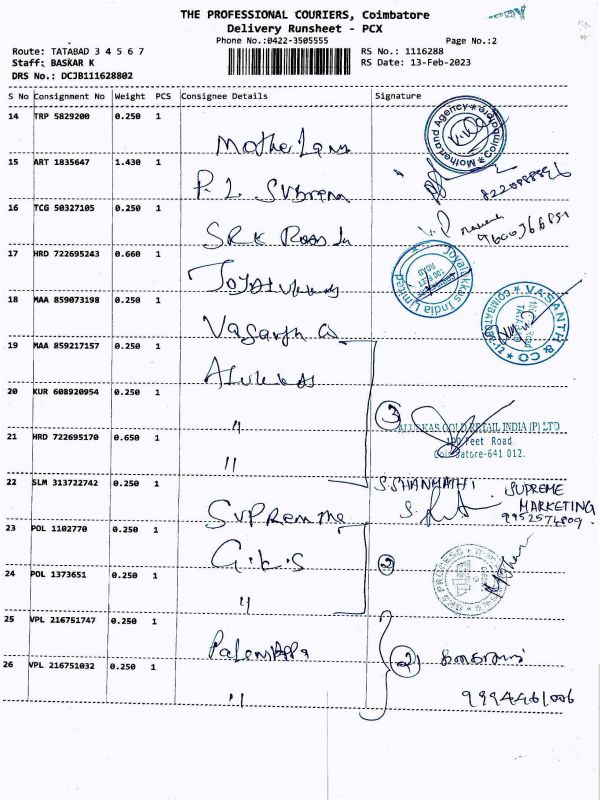 THE PROFESSIONAL COURIERS, Coimbatore
Delivery Runsheet - PCX
Phone No.:0422-3505555
Page No.:2
Route: TATABAD 3 4 5 6 7
RS No.: 1116288
Staff: BASKAR K
RS Date: 13-Feb-2023
DRS No.: DCJB111628802
S No Consignment No Weight PCS Consignee Details Signature
14 TRP 5829200 0.250 1
Motherland Agency Coimbatore
15 ART 1835647 1.430 1
P. L
16 TCG 50327105 0.250 1
SRK
17 HRD 722695243 0.660 1
Joyalukkas India Limited
100 FEET ROAD
18 MAA 859073198 0.250 1
VASANTH & CO
COIMBATORE-12
19 MAA 859217157 0.250 1
20 KUR 608920954 0.250 1
"
3
ALUKKAS GOLD RETAIL INDIA (P) LTD
100 Feet Road
Coimbatore-641 012.
21 HRD 722695170 0.650 1
"
22 SLM 313722742 0.250 1
S. SHANMATHI
SUPREME
MARKETING
9952574809.
23 POL 1102770 0.250 1
G.K.S
2
24 POL 1373651 0.250 1
"
25 VPL 216751747 0.250 1
2
26 VPL 216751032 0.250 1
"
9994461006